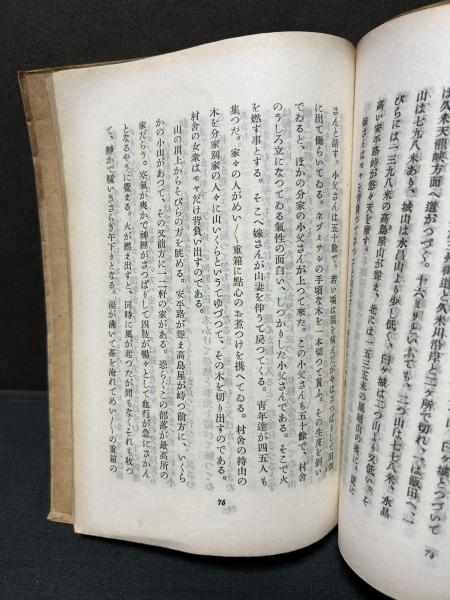 は久米天龍峽方面へ道がつづく。
山は七九八米あり、城山は水晶山より少し低く、臼ヶ城は二つ山より又低い。そ
びらには一三九八米の高鳥屋山が聳え、北には一五三五米の風越山の
高い安平路峠が悠々天を摩する。
さんと話す。小父さんは五十餘で、若い頃は
に出て働らいてゐる。ネヅミサシの手頃な木を一本切つて貰ふ。その生皮を剝い
でゐると、ほかの分家の小父さんが上つて來た。この小父さんも五十餘で、村舍
のうしろ立になつてゐる氣性の面白い、しつかりした小父さんである。そこで火
を燃す事とする。そこへ嫁さんが山妻を伴うて戻つてくる。靑年達が四五人も
集つた。家々の人がめい〳〵重箱に點心のお煮つけを携へてゐる。村舍の持山の
木を分家別家の人々に出いくらといふてゆづつて、その木を切り出すのである。
村舍の女衆はモヤだけ背負い出すのである。
山の頂上からそびらの方を眺める。安平路が聳え高鳥屋が峙つ前方に、いくら
かの小山があつて、その又前方に一二軒の家がある。恐らくこの部落が最高所の
家だらう。空氣が爽かで神經がさつぱりして四肢が暢々として血行が急にさかん
となるやうに覺える。火が燃え出すと、同時に風が起つたが間もなくそれも歇つ
て、靜かで暖いきさらぎ午下りとなる。湯が沸いて茶を淹れてめい〳〵の重箱の
75
74